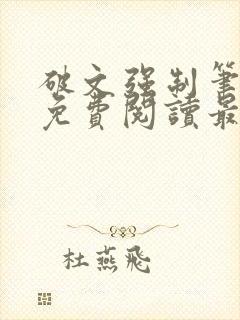 破文强制笔
免费阅读最
杜燕飞